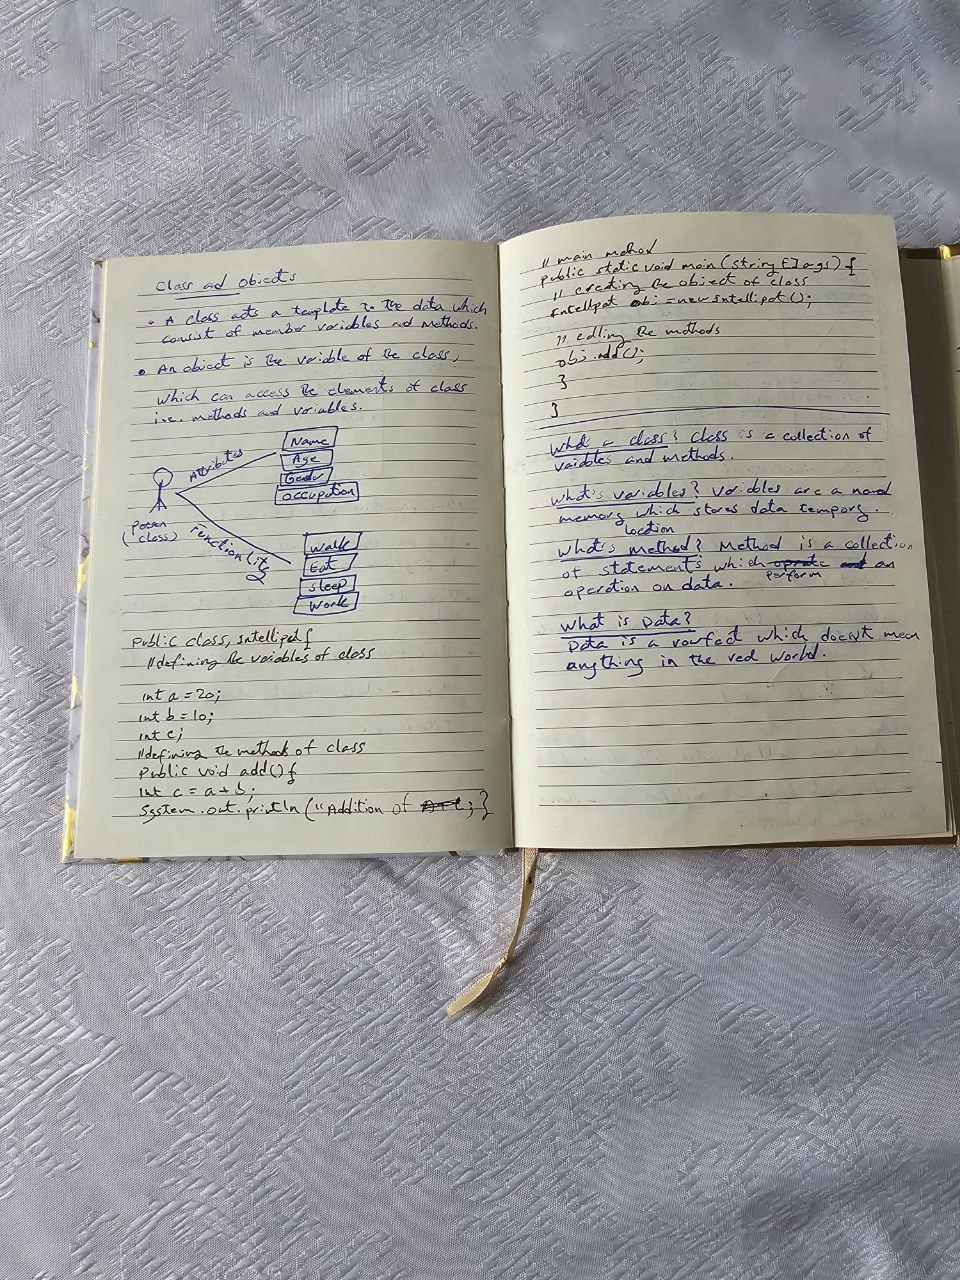 Class and objects
• A class acts a template to the data which
consist of member variables and methods.
• An object is the variable of the class,
which can access the elements of class
i.e. methods and variables.
Attributes
Name
Age
Gender
occupation
person
(class)
Functionality
walk
Eat
sleep
work
public class, intellipat {
"defining the variables of class
int a = 20;
int b = 10;
int c;
"defining the methods of class
public void add() {
int c = a + b;
System.out.println ("Addition of ; }
" main method
public static void main (string [] args) {
" creating the object of class
intellipat obj = new intellipat ();
" calling the methods
obj.add();
}
}
What a class? Class is a collection of
variables and methods.
What's variables? Variables are a named
memory which stores data tempory.
location
What's method? Method is a collection
of statements which an
perform
operation on data.
What is Data?
Data is a rawfact which doesn't mean
anything in the real world.